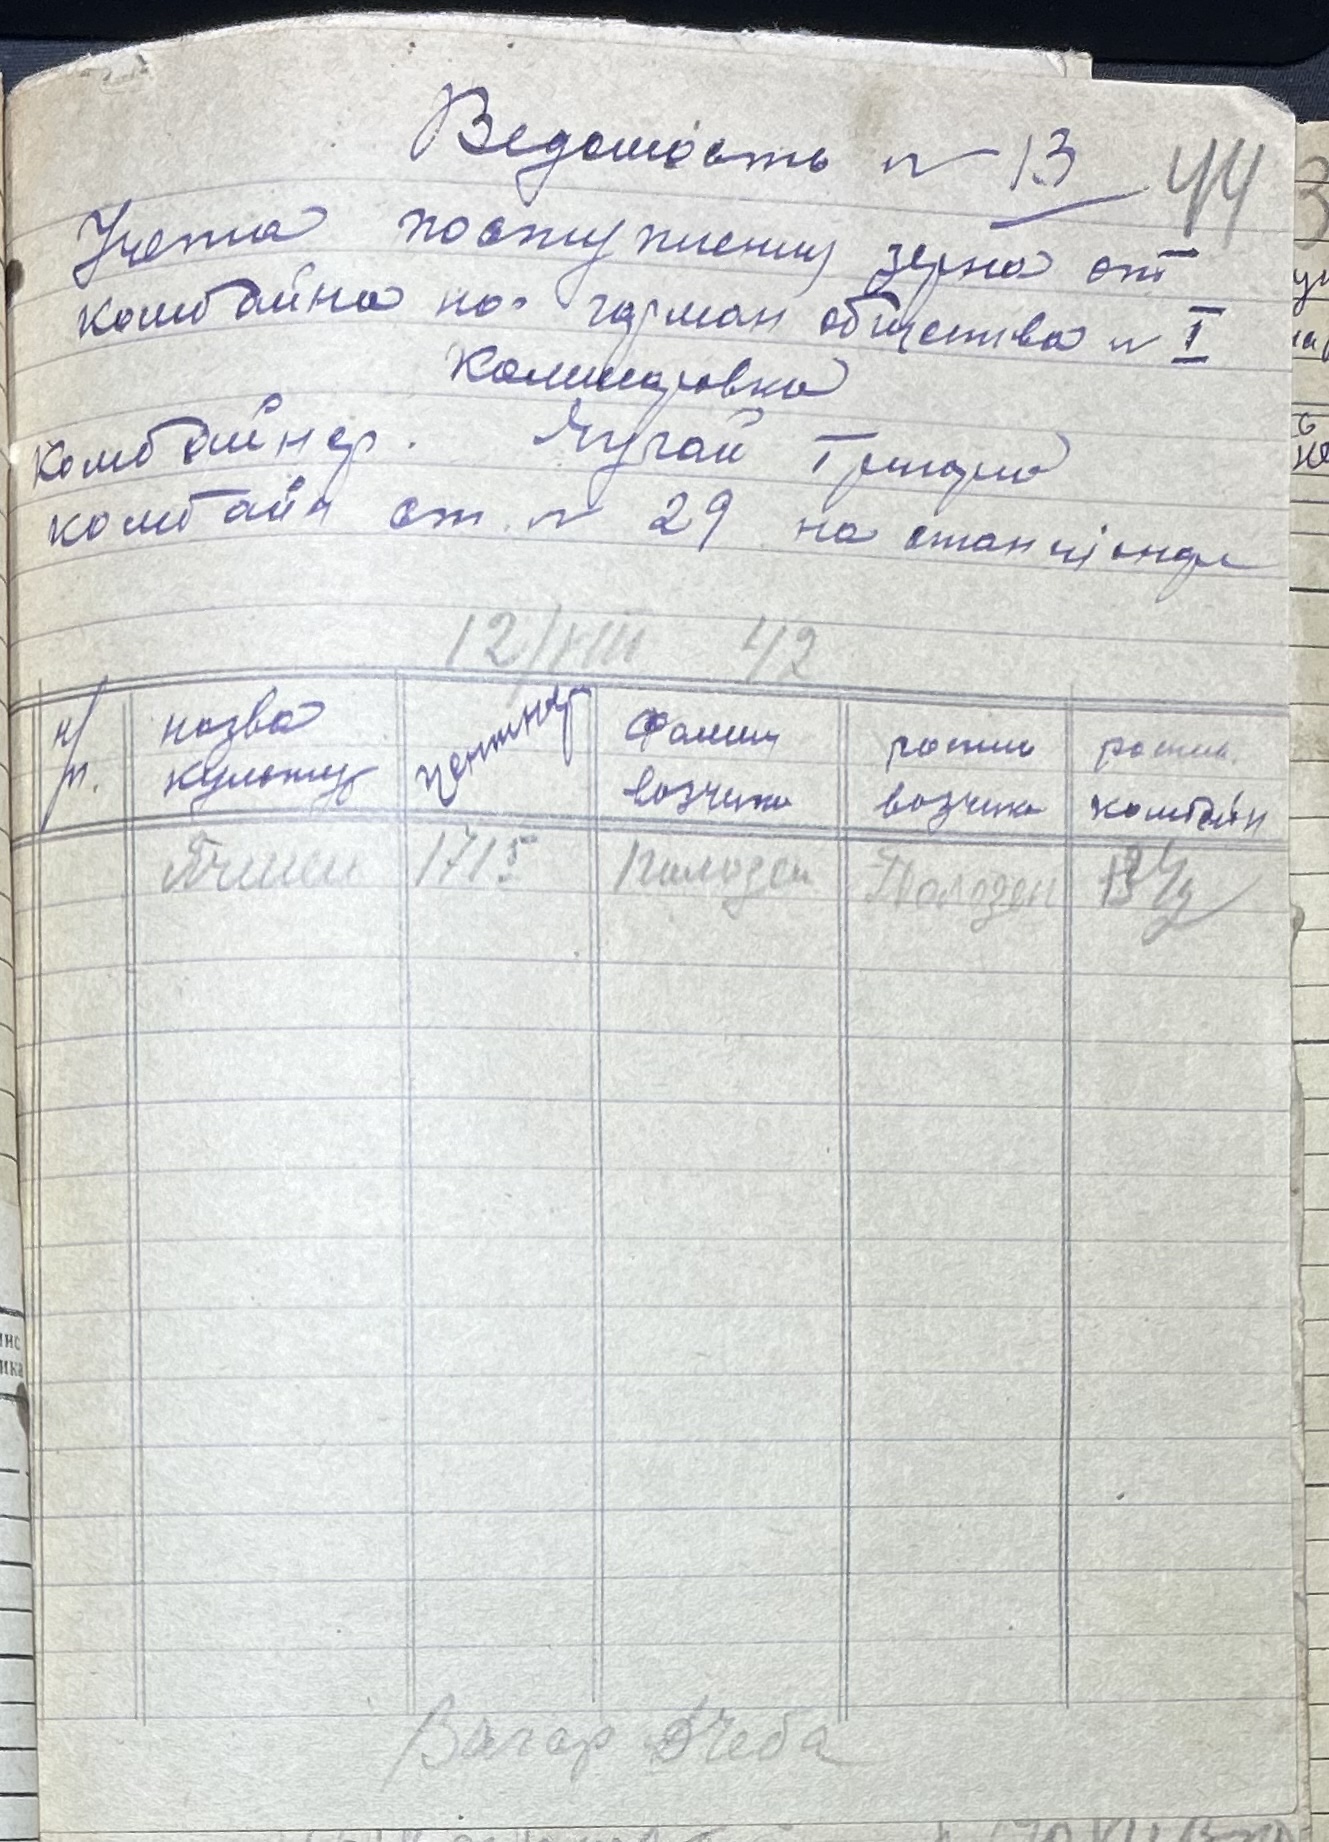 Ведомость № 13 44
Учета поступления зерна от
комбайна по герман общества № I
Комисаровка
Комбайнер. Григорий
комбайн ст. № 29 на
12/VIII 42
н/п. назва культур центнер Фамил возчика роспис возчика роспис. комбайн
Пшени 1715 Полозен Полозен
Вагар Дчеба